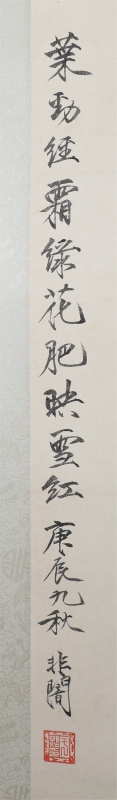 葉勁經霜綠花肥映雪紅庚辰九秋非闇